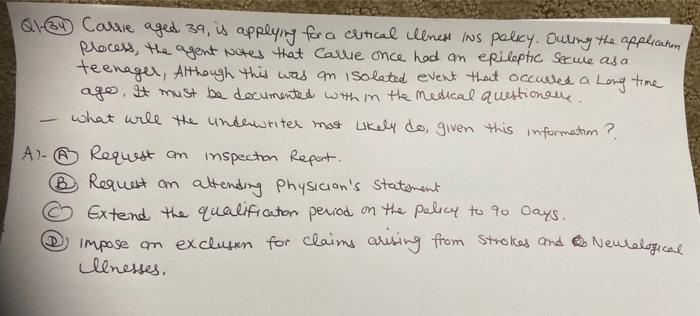 Q1-(34) Carrie aged 39, is applying for a critical illness ins policy. During the application
process, the agent notes that Carrie once had an epileptic secure as a
teenager, Although this was an isolated event that occurred a Long time
ago, It must be documented with in the Medical questionare.
- what will the underwriter most likely do, given this information?
A)- (A) Request an inspection Report.
(B) Request an attending physician's statement
(C) Extend the qualification period on the policy to 90 Days.
(D) Impose an exclusion for claims arising from strokes and Neurological
illnesses.